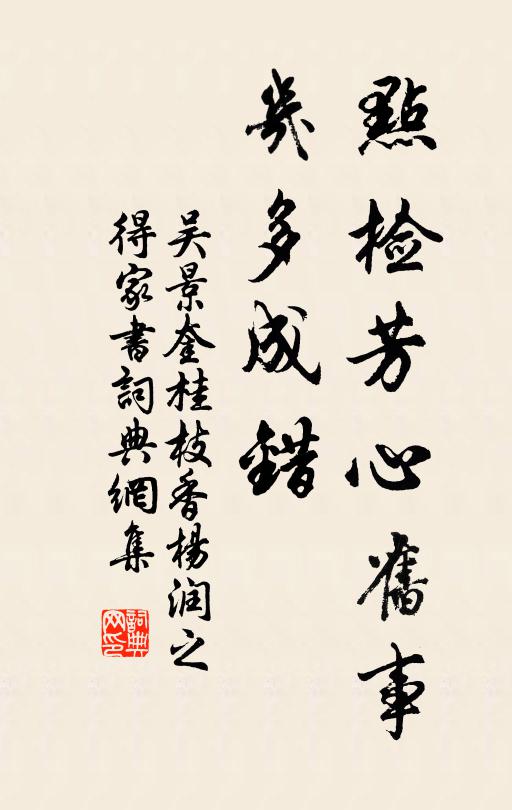 點检芳心舊事
幾多成錯
吴景奎桂枝香楊润之
得家書詞典網集
詞典
网印